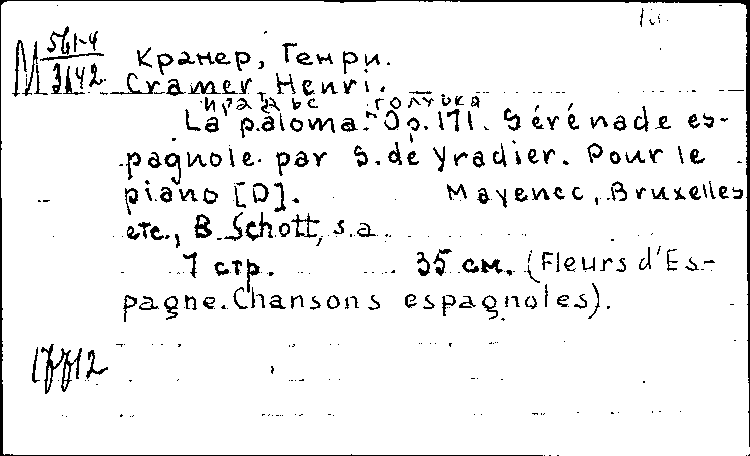 M 561-4
3142
Крамер, Генри.
Cramer, Henri.
ирадьє голубка
La paloma. Op. 171. Sérénade es-
pagnole par S. de Yradier. Pour le
piano [D]. Mayence, Bruxelles
etc., B. Schott, s.a.
7 стр. 35 см. (Fleurs d'Es-
pagne. Chansons espagnoles).